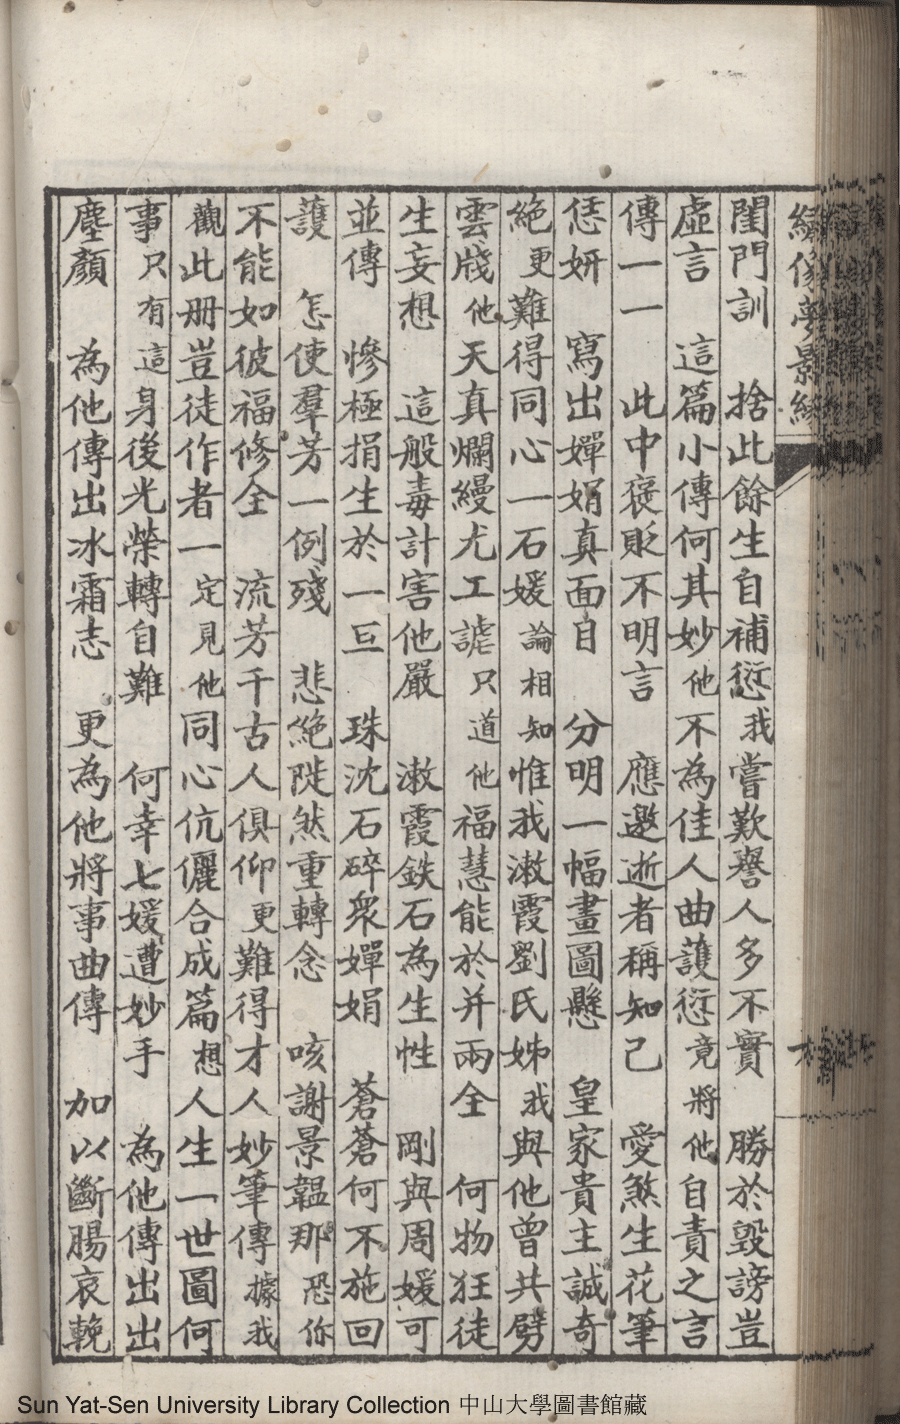 繡像夢影緣
閨門訓　捨此餘生自補愆我嘗歎譽人多不實　勝於毀謗豈
虛言　這篇小傳何其妙他不為佳人曲護愆竟將他自責之言
傳一一　此中褒貶不明言　應邀逝者稱知己　愛煞生花筆
恁妍　寫出嬋娟真面目　分明一幅畫圖懸　皇家貴主誠奇
絕更難得同心一石媛論相知惟我漱霞劉氏姊我與他曾共劈
雲牋他天真爛縵尤工謔只道他福慧能於并兩全　何物狂徒
生妄想　這般毒計害他嚴　漱霞鉄石為生性　剛與周媛可
並傳　慘極捐生於一旦　珠沈石碎眾嬋娟　蒼蒼何不施回
護　怎使羣芳一例殘　悲絕陡然重轉念　咳謝景韞那恐你
不能如彼福修全　流芳千古人俱仰更難得才人妙筆傳據我
觀此册豈徒作者一定見他同心伉儷合成篇想人生一世圖何
事只有這身後光榮轉自難　何幸七媛遭妙手　為他傳出出
塵顏　為他傳出冰霜志　更為他將事曲傳　加以斷腸哀輓
Sun Yat-Sen University Library Collection 中山大學圖書館藏